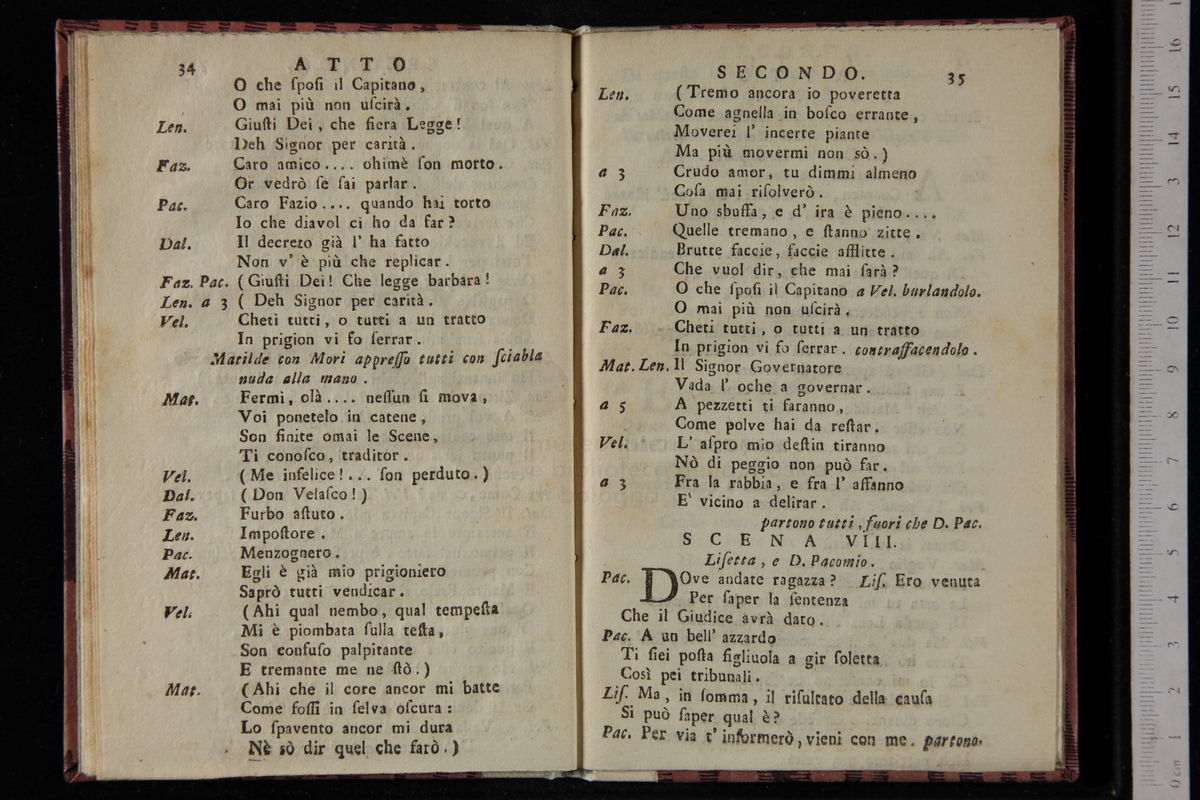 34
A T T O
O che ſpoſi il Capitano,
O mai più non uſcirà.
Len. Giuſti Dei, che fiera Legge!
Deh Signor per carità.
Faz. Caro amico.... ohimè ſon morto.
Or vedrò ſe ſai parlar.
Pac. Caro Fazio.... quando hai torto
Io che diavol ci ho da far?
Dal. Il decreto già l' ha fatto
Non v' è più che replicar.
Faz. Pac. (Giuſti Dei! Che legge barbara!
Len. a 3 ( Deh Signor per carità.
Vel. Cheti tutti, o tutti a un tratto
In prigion vi fo ſerrar.
Matilde con Mori appreſſo tutti con ſciabla
nuda alla mano.
Mat. Fermi, olà.... neſſun ſi mova,
Voi ponetelo in catene,
Son finite omai le Scene,
Ti conoſco, traditor.
Vel. (Me infelice!... ſon perduto.)
Dal. (Don Velaſco!)
Faz. Furbo aſtuto.
Len. Impoſtore.
Pac. Menzognero.
Mat. Egli è già mio prigioniero
Saprò tutti vendicar.
Vel. (Ahi qual nembo, qual tempeſta
Mi è piombata ſulla teſta,
Son confuſo palpitante
E tremante me ne ſtò.)
Mat. (Ahi che il core ancor mi batte
Come foſſi in ſelva oſcura:
Lo ſpavento ancor mi dura
Nè sò dir quel che farò.)
SECONDO.
35
Len. (Tremo ancora io poveretta
Come agnella in boſco errante,
Moverei l' incerte piante
Ma più movermi non sò.)
a 3 Crudo amor, tu dimmi almeno
Coſa mai riſolverò.
Faz. Uno sbuffa, e d' ira è pieno....
Pac. Quelle tremano, e ſtanno zitte.
Dal. Brutte faccie, faccie afflitte.
a 3 Che vuol dir, che mai ſarà?
Pac. O che ſpoſi il Capitano a Vel. burlandolo.
O mai più non uſcirà.
Faz. Cheti tutti, o tutti a un tratto
In prigion vi fo ſerrar. contraffacendolo.
Mat. Len. Il Signor Governatore
Vada l' oche a governar.
a 5 A pezzetti ti faranno,
Come polve hai da reſtar.
Vel. L' aſpro mio deſtin tiranno
Nò di peggio non può far.
a 3 Fra la rabbia, e fra l' affanno
E' vicino a delirar.
partono tutti, fuori che D. Pac.
S C E N A VIII.
Liſetta, e D. Pacomio.
Pac. DOve andate ragazza? Liſ. Ero venuta
Per ſaper la ſentenza
Che il Giudice avrà dato.
Pac. A un bell' azzardo
Ti ſiei poſta figliuola a gir ſoletta
Così pei tribunali.
Liſ. Ma, in ſomma, il riſultato della cauſa
Si può ſaper qual è?
Pac. Per via t' informerò, vieni con me. partono.